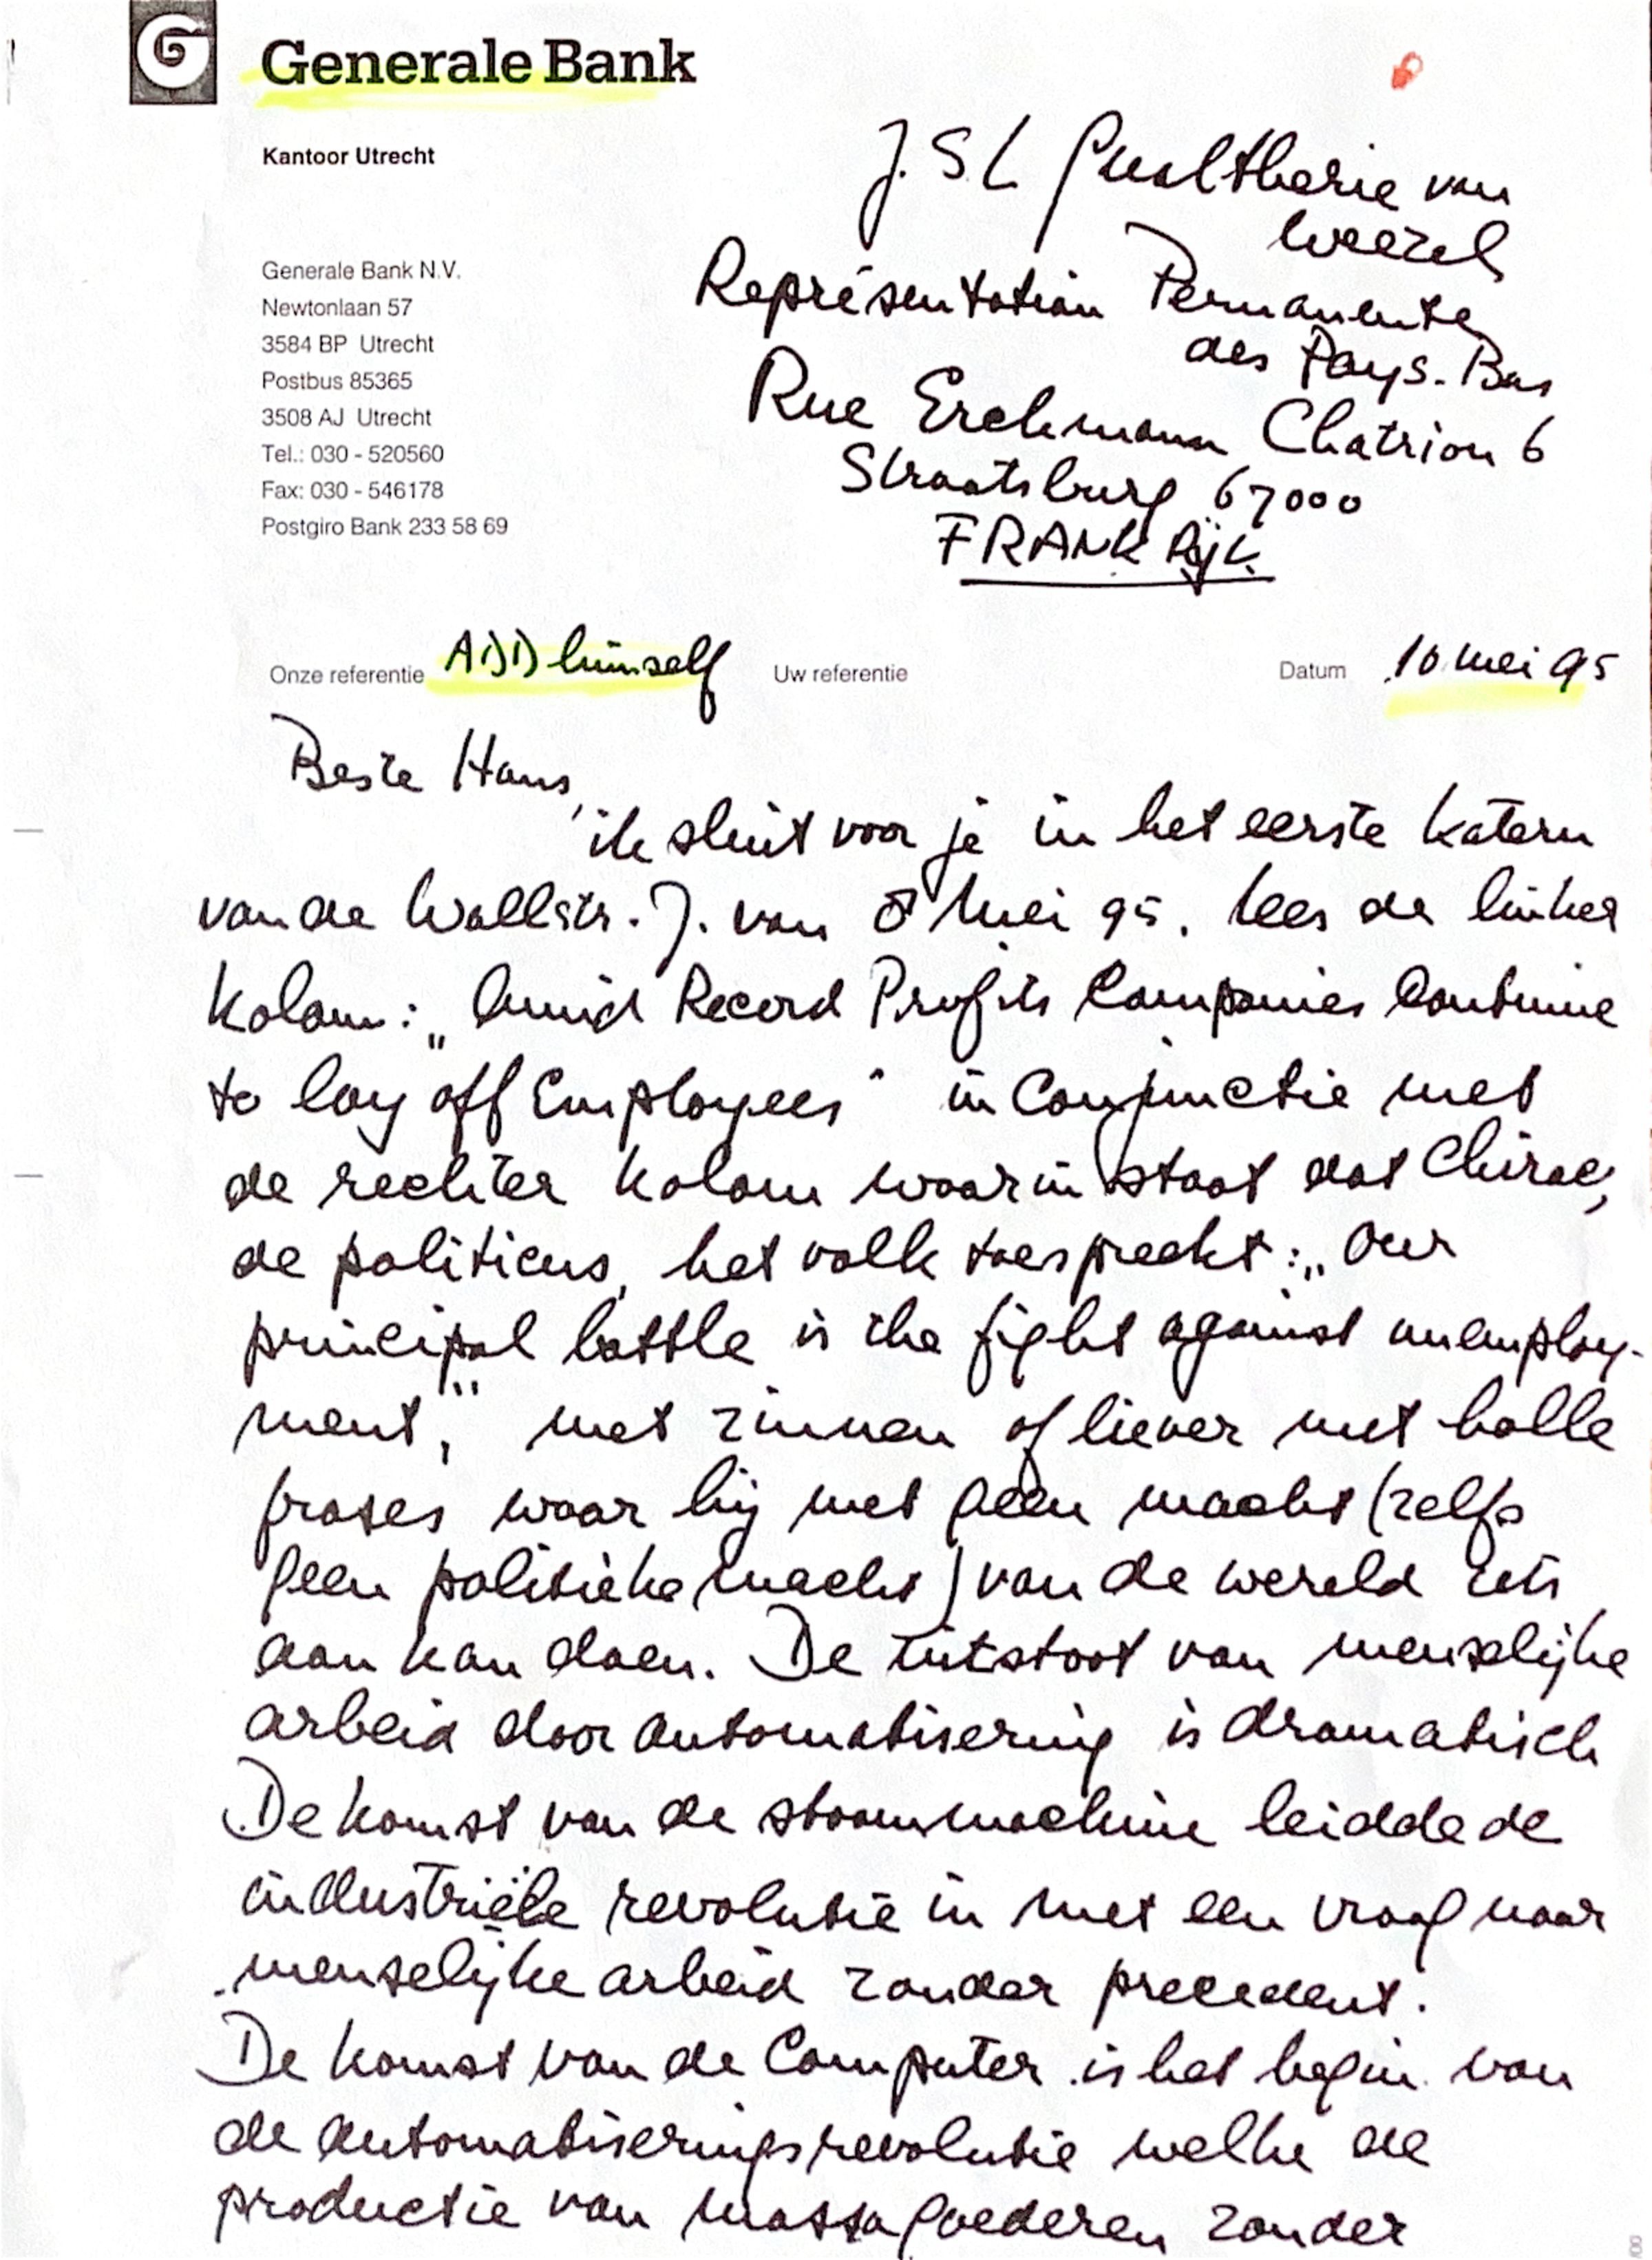 G
Generale Bank
Kantoor Utrecht
J.S.L Gualtherie van
Weezel
Représentation Permanente
des Pays-Bas
Rue Erckmann Chatrion 6
Straatsburg 67000
FRANKRijk.
Generale Bank N.V.
Newtonlaan 57
3584 BP Utrecht
Postbus 85365
3508 AJ Utrecht
Tel.: 030 - 520560
Fax: 030 - 546178
Postgiro Bank 233 58 69
Onze referentie ADD himself Uw referentie Datum 10 mei 95
Beste Hans,
ik sluit voor je in het eerste katern
van de Wallstr. J. van 8 Mei 95. Lees de linker
kolom: „Amid Record Profits Companies Continue
to lay off Employees" in Conjunctie met
de rechter kolom waarin staat dat Chirac,
de politicus, het volk toespreekt: „Our
principal battle is the fight against unemploy-
ment," met zinnen of liever met holle
frases waar hij met geen macht (zelfs
geen politieke macht) van de wereld iets
aan kan doen. De uitstoot van menselijke
arbeid door automatisering is dramatisch
De komst van de stoommachine leidde de
industriële revolutie in met een vraag naar
menselijke arbeid zonder precedent.
De komst van de Computer is het begin van
de automatiseringsrevolutie welke de
productie van massagoederen zonder
8